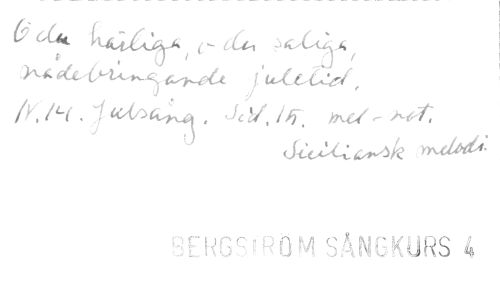 O du härliga, o du saliga,
nådebringande juletid.
N. 14. Julsång. Sid. 15. mel-not.
Siciliansk melodi.
BERGSTRÖM SÅNGKURS 4